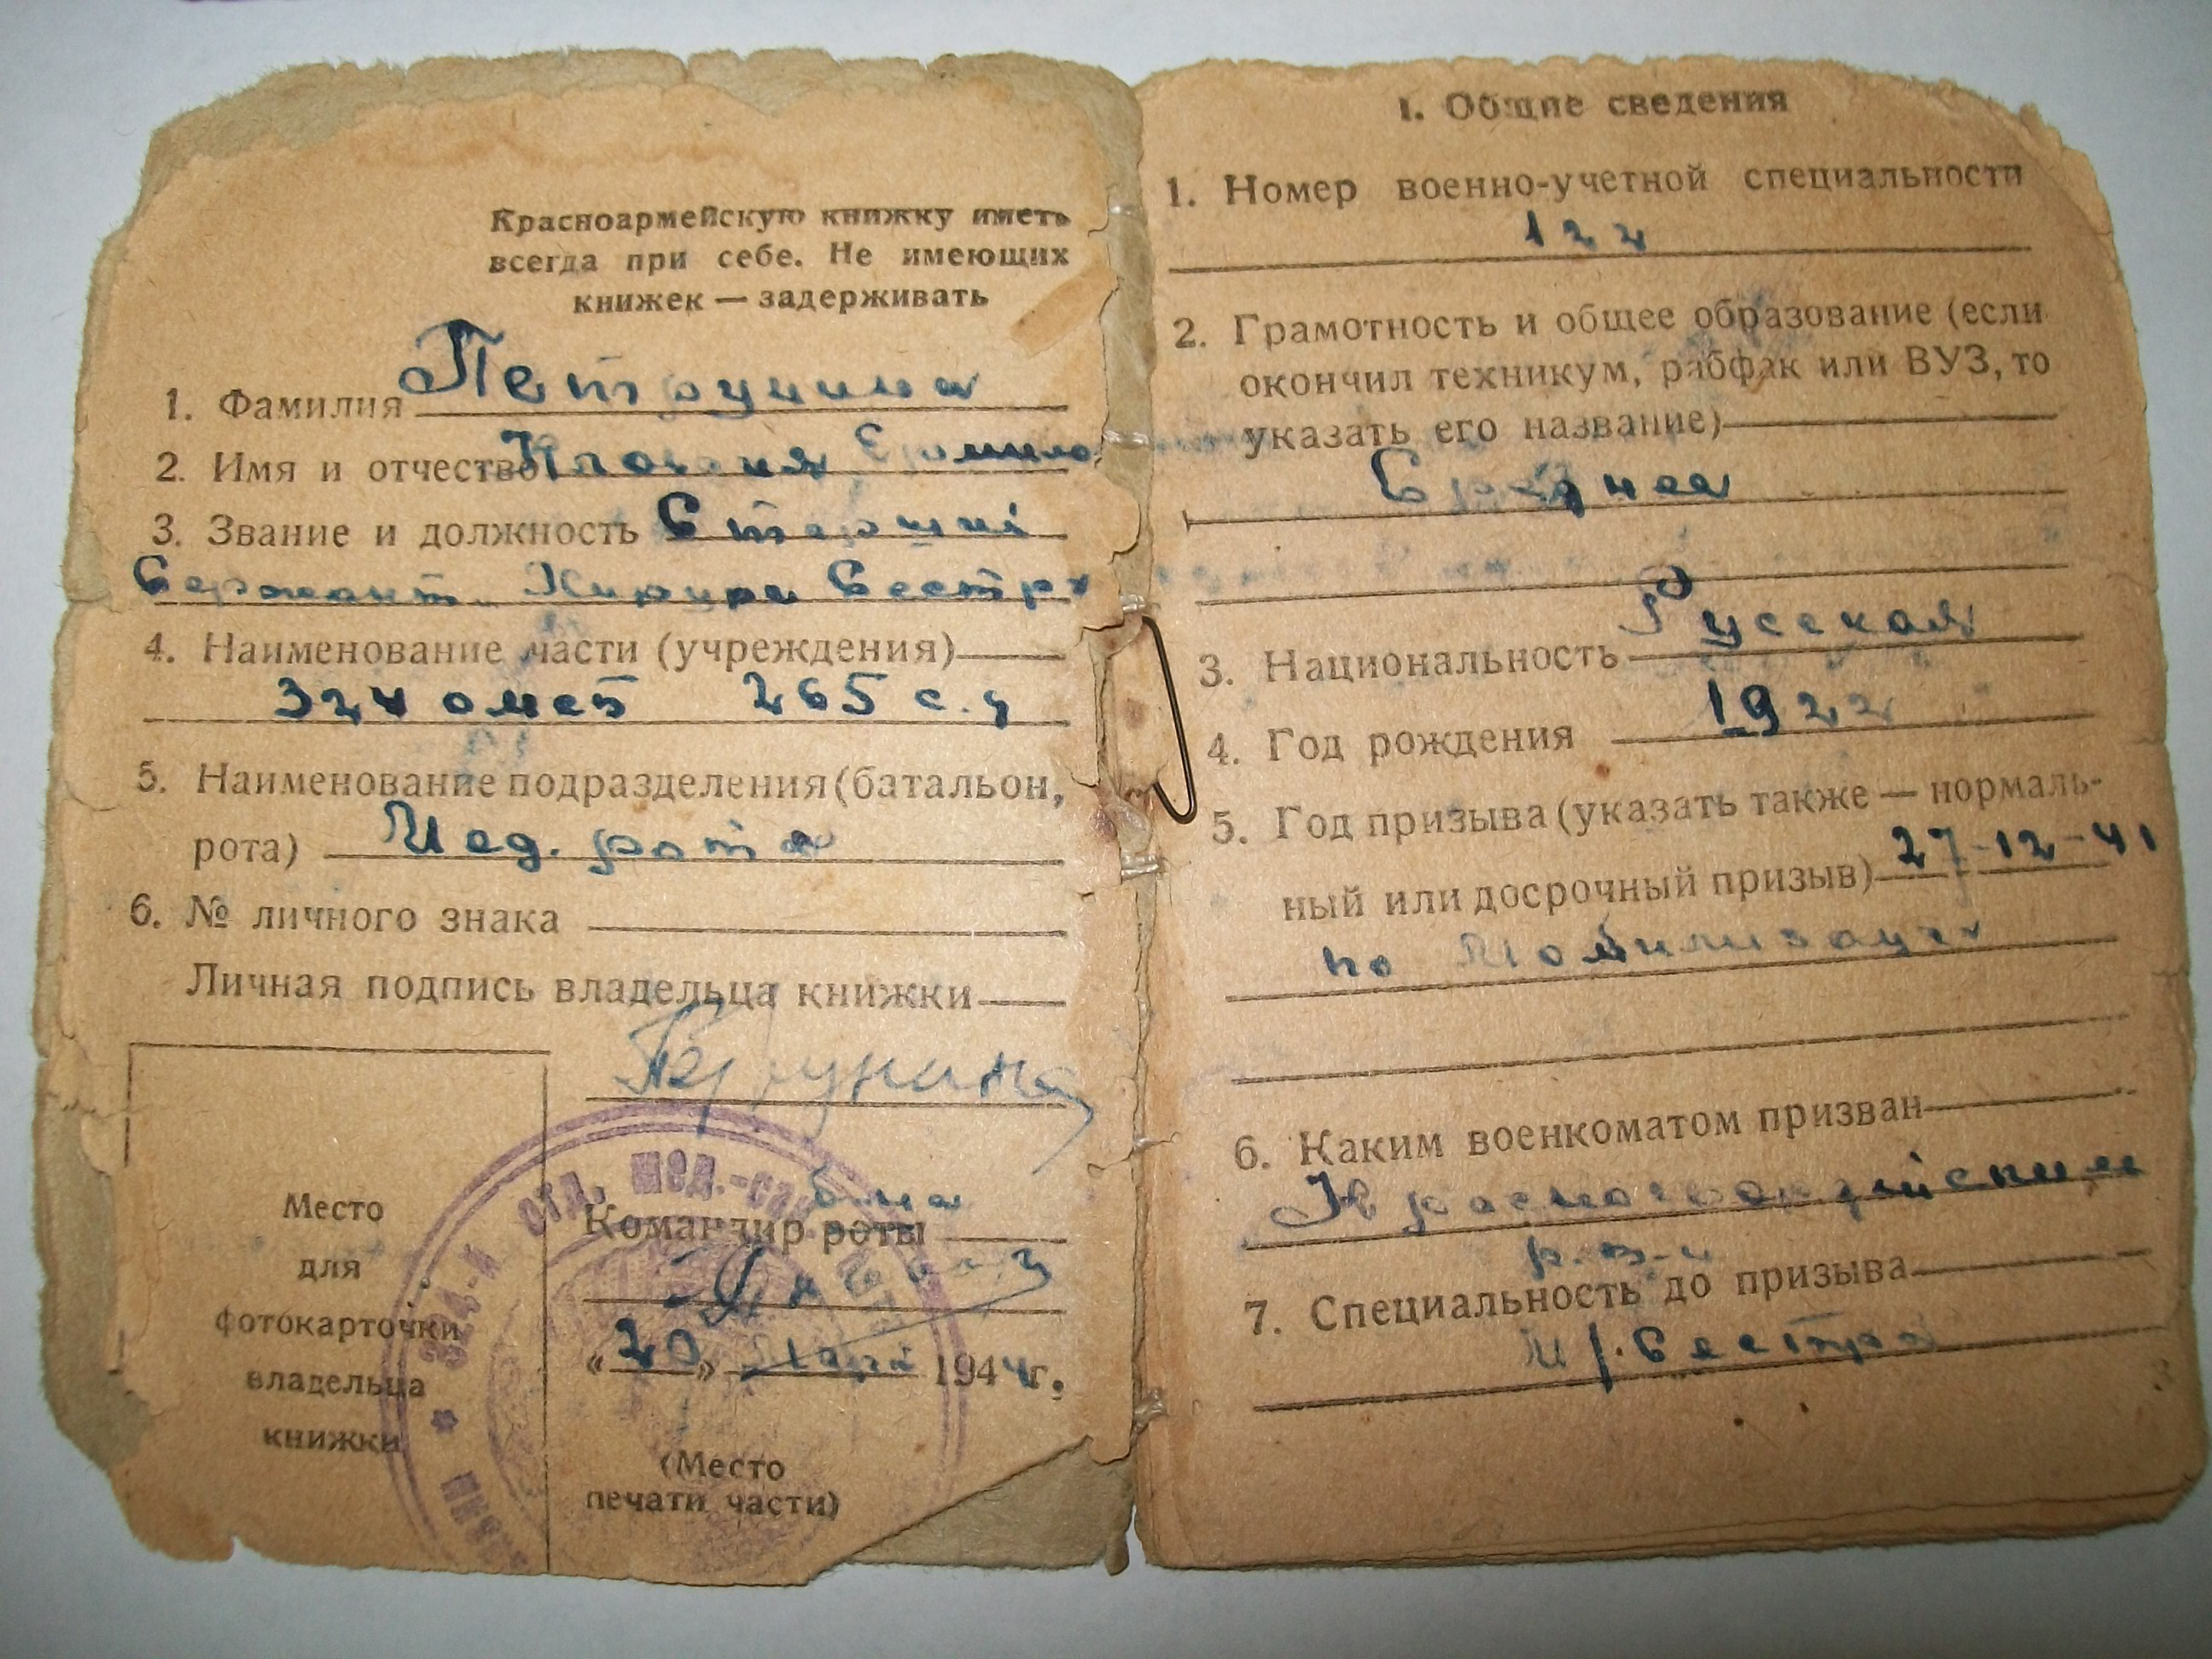 Красноармейскую книжку иметь
всегда при себе. Не имеющих
книжек — задерживать
1. Фамилия Петрунина
2. Имя и отчество Клавдия
3. Звание и должность Старший
Сержант. Хирург. Сестра
4. Наименование части (учреждения)
324 омсб 265 с.д
5. Наименование подразделения (батальон,
рота) Мед. рота
6. № личного знака
Личная подпись владельца книжки
Петрунина
Место
для
фотокарточки
владельца
книжки
Командир роты б-на
«20» 1944г.
(Место
печати части)
324-Й ОТД. МЕД.-САН
I. Общие сведения
1. Номер военно-учетной специальности
122
2. Грамотность и общее образование (если
окончил техникум, рабфак или ВУЗ, то
указать его название)
Среднее
3. Национальность Русская
4. Год рождения 1922
5. Год призыва (указать также — нормаль-
ный или досрочный призыв) 27-12-41
по Мобилизации
6. Каким военкоматом призван
Красногвардейским
р.в-к
7. Специальность до призыва
М/. Сестра